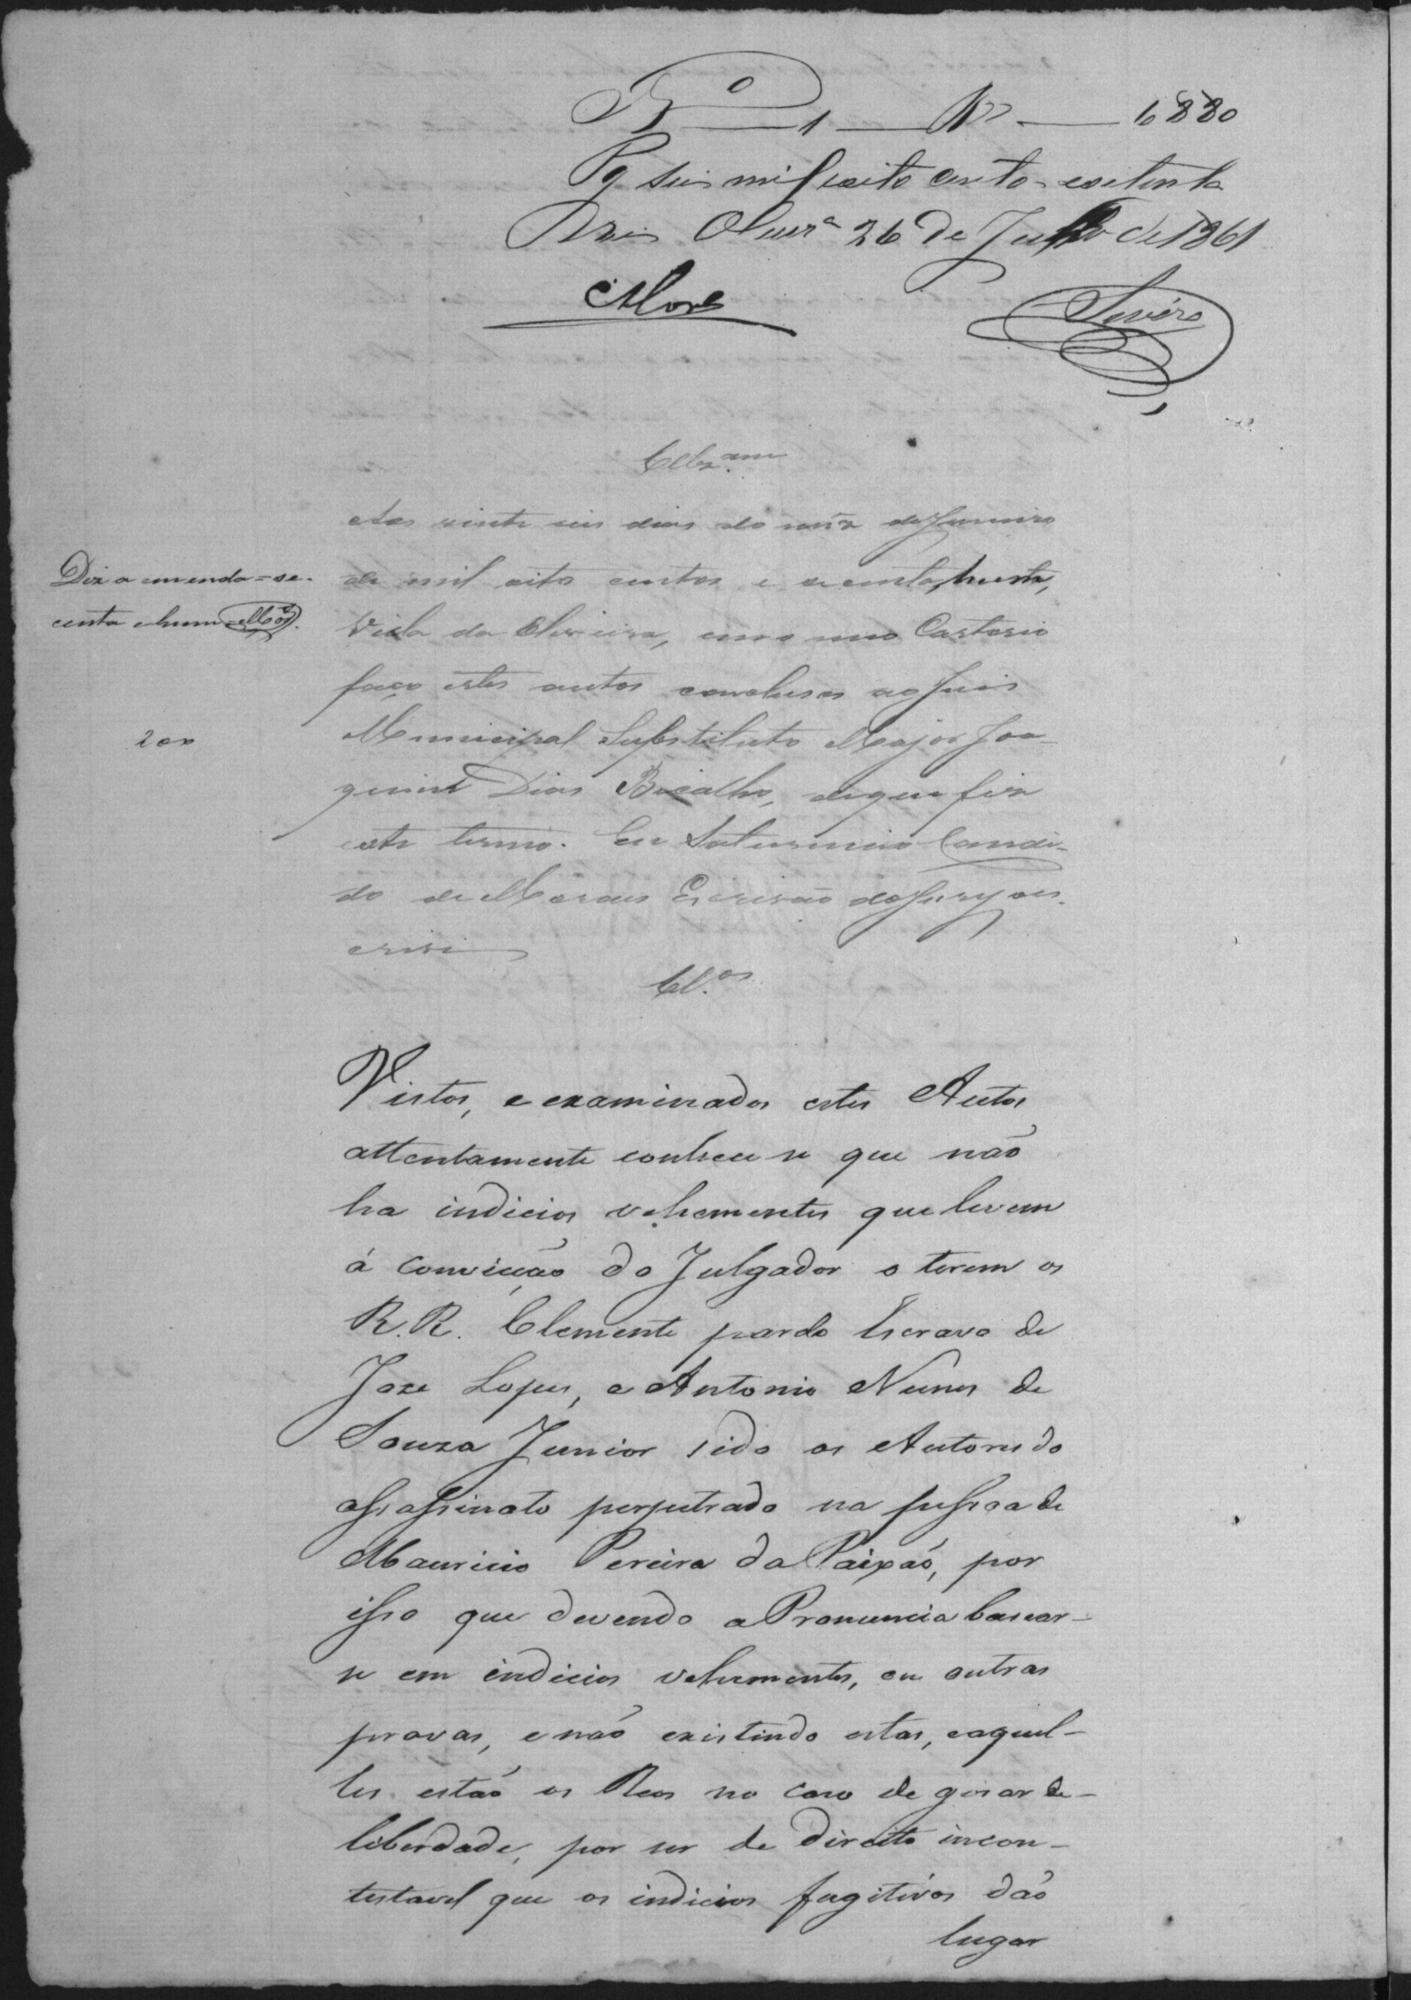 Nº 1 Rs 6880
Pg seis mil oito centos e oitenta
Reis Oliveirª 26 de Julho de 1861
Moraes Severo
Cllzam
Aos vinte seis dias do mês de Janeiro
de mil oito centos e secenta, nesta,
Villa da Oliveira, em o meu Cartorio
faço estes autos conclusos ao Juis
Municipal Substituto Major Joa-
quim Dias Bicalho, de que fiz
este termo. Eu Saturnino Candi-
do de Moraes Escrivão do Jury o es-
crivi
Diz a emenda = se-
centa e hum = Mes.
200
Cl.os
Vistos, e examinados estes Autos
attentamente conhece se que não
ha indicios vehementes que levem
á convicção do Julgador o terem os
R.R. Clemente pardo Escravo de
Joze Lopes, e Antonio Nunes de
Souza Junior sido os Autores do
assassinato perpetrado na pessoa de
Mauricio Pereira da Paixaõ, por
isso que devendo a Pronuncia basear-
se em indicios vehementes, ou outras
provas, e não existindo estas, e aquel-
les estaõ os Reos no caso de gosar de-
liberdade, por ser de direito incon-
testavel que os indicios fugitivos daõ
lugar